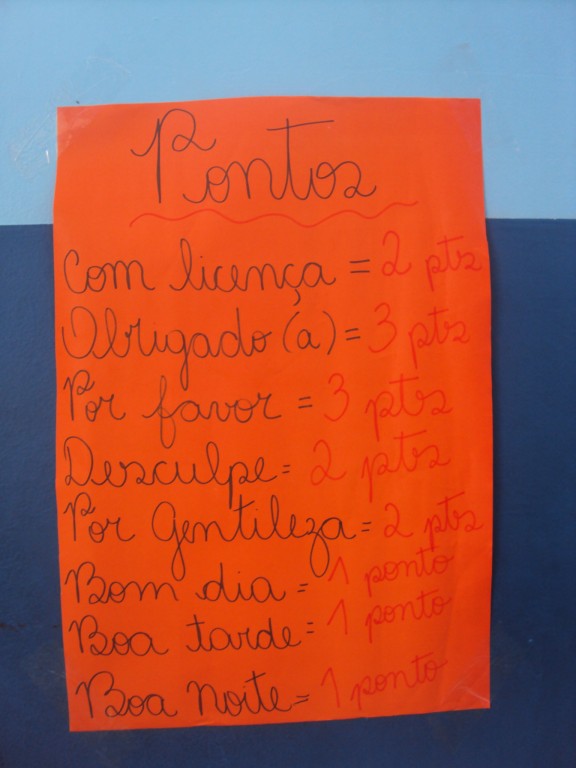 Pontos
Com licença = 2 pts
Obrigado (a) = 3 pts
Por favor = 3 pts
Desculpe = 2 pts
Por Gentileza = 2 pts
Bom dia = 1 ponto
Boa tarde = 1 ponto
Boa Noite = 1 ponto